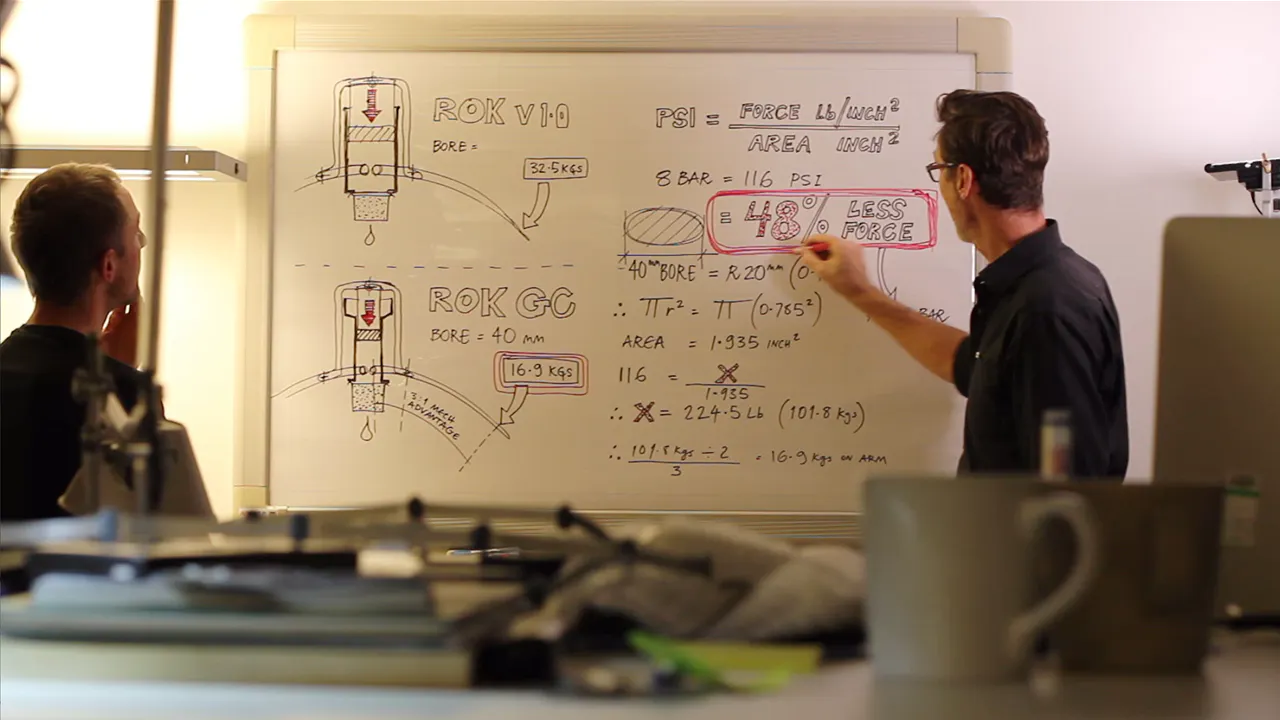 ROK V1.0
BORE =
32.5 KGS
ROK GC
BORE = 40 mm
16.9 KGS
3:1 MECH
ADVANTAGE
PSI = FORCE Lb/INCH²
AREA INCH²
8 BAR = 116 PSI
= 48% LESS
FORCE
40mm BORE = R 20mm (0.
BAR
∴ πr² = π (0.785²)
AREA = 1.935 INCH²
116 = X
1.935
∴ X = 224.5 Lb (101.8 Kgs)
∴ 101.8 Kgs ÷ 2 = 16.9 Kgs ON ARM
3